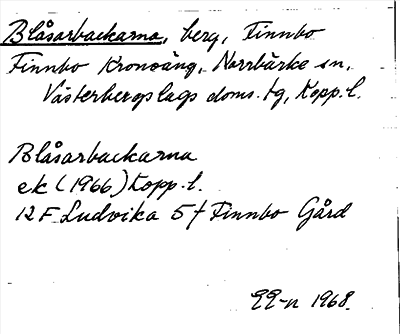 Blåsarbackarna, berg, Finnbo.
Finnbo Kronoäng, Norrbärke sn,
Västerbergslags doms. tg, Kopp. l.
Blåsarbackarna
ek (1966) Kopp. l.
12 F Ludvika 5 f Finnbo Gård
EE-n 1968.